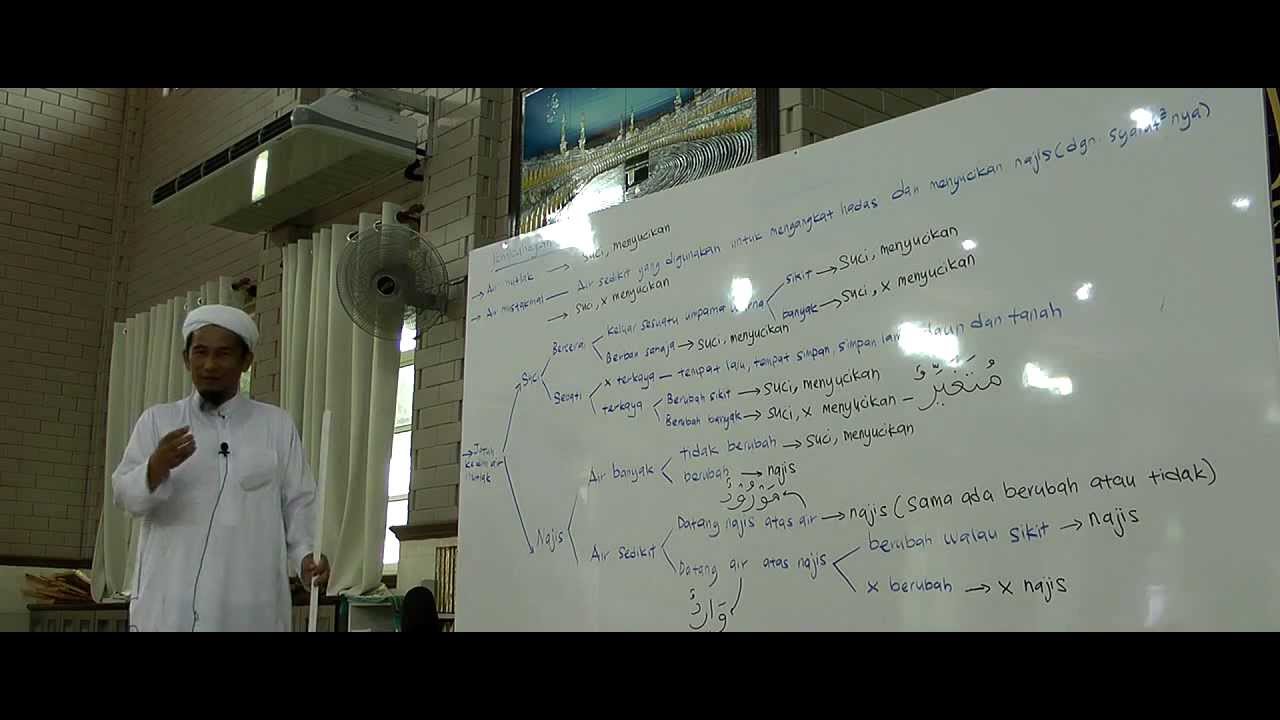 → Air mutlak → Suci, menyucikan
→ Air mustakmal — Air sedikit yang digunakan untuk mengangkat hadas dan menyucikan najis (dgn. syarat²nya)
→ Suci, x menyucikan
→ Jatuh kedlm air mutlak
Suci
Bercerai
Keluar sesuatu umpama warna
sikit → Suci, menyucikan
banyak → Suci, x menyucikan
Berbau sahaja → Suci, menyucikan
Sebati
x terkaya — tempat lalu, tempat simpan, simpan daun dan tanah
terkaya
Berubah sikit → Suci, menyucikan
Berubah banyak → Suci, x menyucikan – مُتَغَيِّرٌ
Najis
Air banyak
tidak berubah → Suci, menyucikan
berubah → najis
مَوْرُوْدٌ
Air sedikit
Datang najis atas air → najis (sama ada berubah atau tidak)
Datang air atas najis
berubah walau sikit → najis
x berubah → x najis
وَارِدٌ